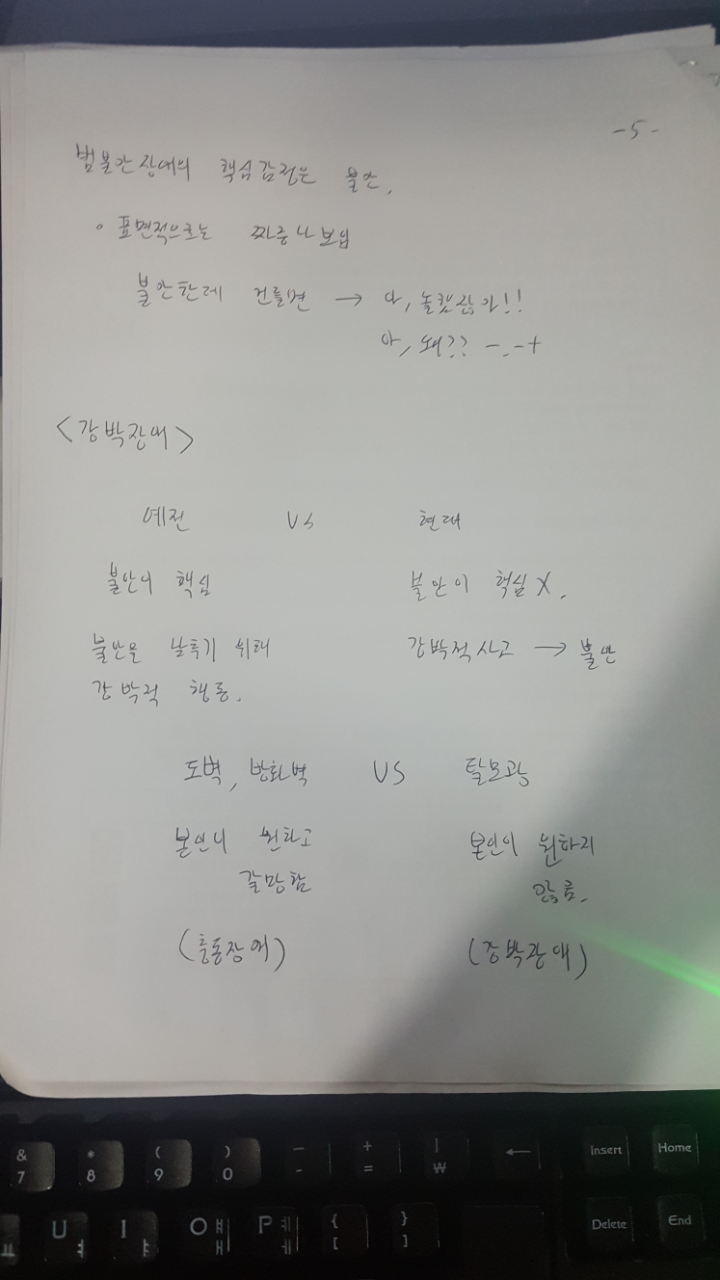 -5-
범불안장애의 핵심감정은 불안.
• 표면적으로는 짜증나보임
불안한데 건들면 → 아, 놀랬잖아!!
아, 왜?? -.-+
<강박장애>
예전 VS 현대
불안이 핵심 불안이 핵심 X.
불안을 낮추기 위해 강박적사고 → 불안
강박적 행동.
도벽, 방화벽 VS 탈모광
본인이 원하고 본인이 원하지
갈망함 않음.
(충동장애) (강박장애)
& 7 * 8 ( 9 ) 0 - - + = | ₩ ← Insert Home
ㅛ U ㅕ I ㅑ O ㅒ ㅐ P ㅖ ㅔ { [ } ] Delete End